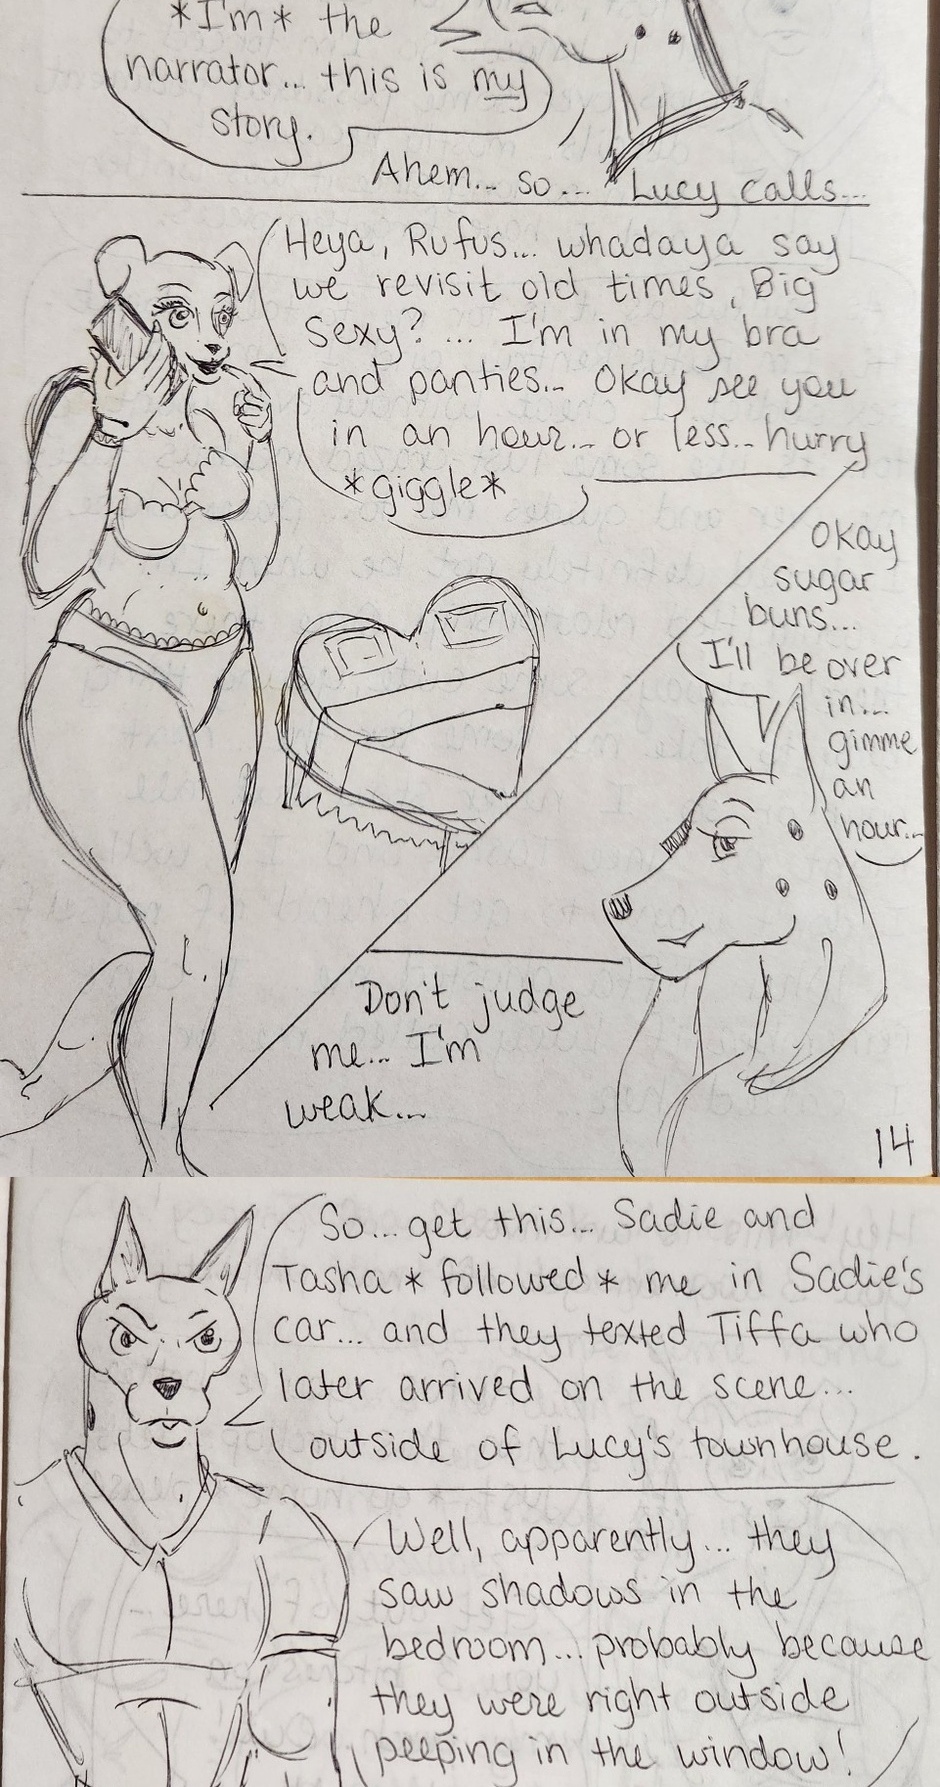 *I'm* the
narrator... this is my
story.
Ahem... so... Lucy calls...
Heya, Rufus... whadaya say
we revisit old times, Big
Sexy? ... I'm in my bra
and panties... Okay see you
in an hour... or less... hurry
*giggle*
Okay
sugar
buns...
I'll be over
in...
gimme
an
hour...
Don't judge
me... I'm
weak...
14
So... get this... Sadie and
Tasha *followed* me in Sadie's
car... and they texted Tiffa who
later arrived on the scene...
outside of Lucy's townhouse.
Well, apparently... they
saw shadows in the
bedroom... probably because
they were right outside
peeping in the window!